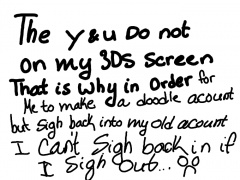 The y & u Do not
on my 3DS screen
That is why in Order for
Me to make a doodle acount
but sigh back into my old acount
I Can't Sigh back in if
I Sigh out...